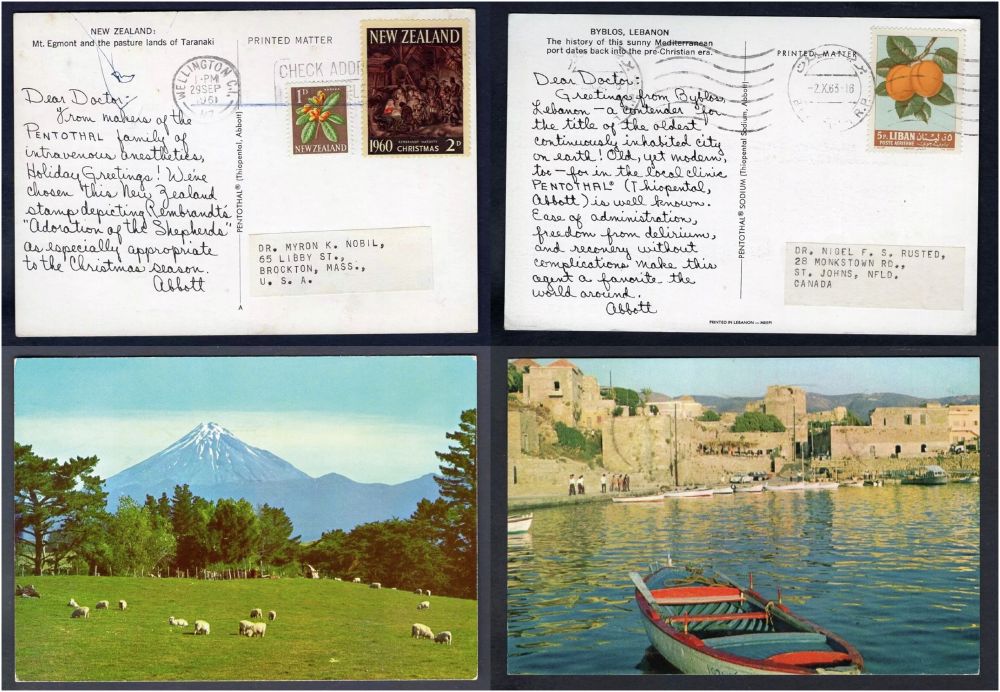 NEW ZEALAND:
Mt. Egmont and the pasture lands of Taranaki
Dear Doctor:
From makers of the
PENTOTHAL family of
intravenous anesthetics,
Holiday Greetings! We've
chosen this New Zealand
stamp depicting Rembrandt's
"Adoration of the Shepherds"
as especially appropriate
to the Christmas season.
Abbott
PENTOTHAL® (Thiopental, Abbott)
A
PRINTED MATTER
WELLINGTON C1
1-PM
29 SEP
1961
CHECK ADDR
1D
NEW ZEALAND
NEW ZEALAND
REMBRANDT NATIVITY
1960 CHRISTMAS 2D
DR. MYRON K. NOBIL,
65 LIBBY ST.,
BROCKTON, MASS.,
U. S. A.
BYBLOS, LEBANON
The history of this sunny Mediterranean
port dates back into the pre-Christian era.
Dear Doctor:
Greetings from Byblos,
Lebanon - a contender for
the title of the oldest
continuously inhabited city
on earth! Old, yet modern,
too - for in the local clinic
PENTOTHAL® (Thiopental,
Abbott) is well known.
Ease of administration,
freedom from delirium,
and recovery without
complications make this
agent a favorite the
world around.
Abbott
PENTOTHAL® SODIUM (Thiopental Sodium, Abbott)
PRINTED MATTER
-2.X63-18
R.P.
5P. LIBAN
POSTE AERIENNE
DR. NIGEL F. S. RUSTED,
28 MONKSTOWN RD.,
ST. JOHNS, NFLD,
CANADA
PRINTED IN LEBANON — MEEPI